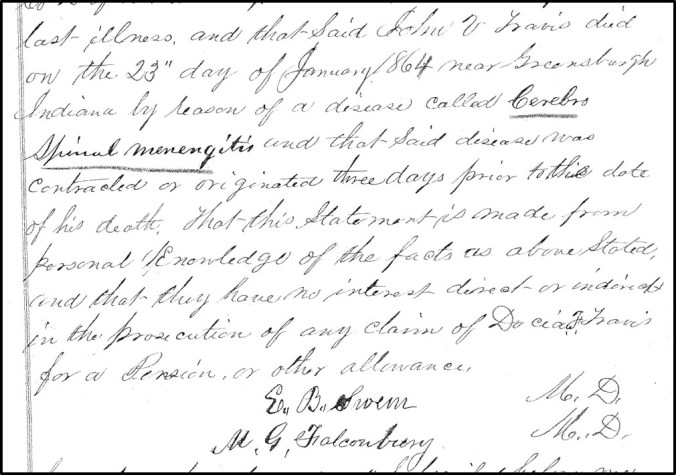 last illness, and that Said John V Travis died
on the 23" day of January 1864 near Greensburgh
Indiana by reason of a disease called Cerebro
Spinal menengitis and that Said disease was
contracted or originated three days prior to the date
of his death. That this Statement is made from
personal Knowledge of the facts as above Stated,
and that they have no interest direct or indirect
in the prosecution of any claim of Docia F. Travis
for a Pension, or other allowance.
E. B. Swem M. D.
M. G. Falconbury M. D.